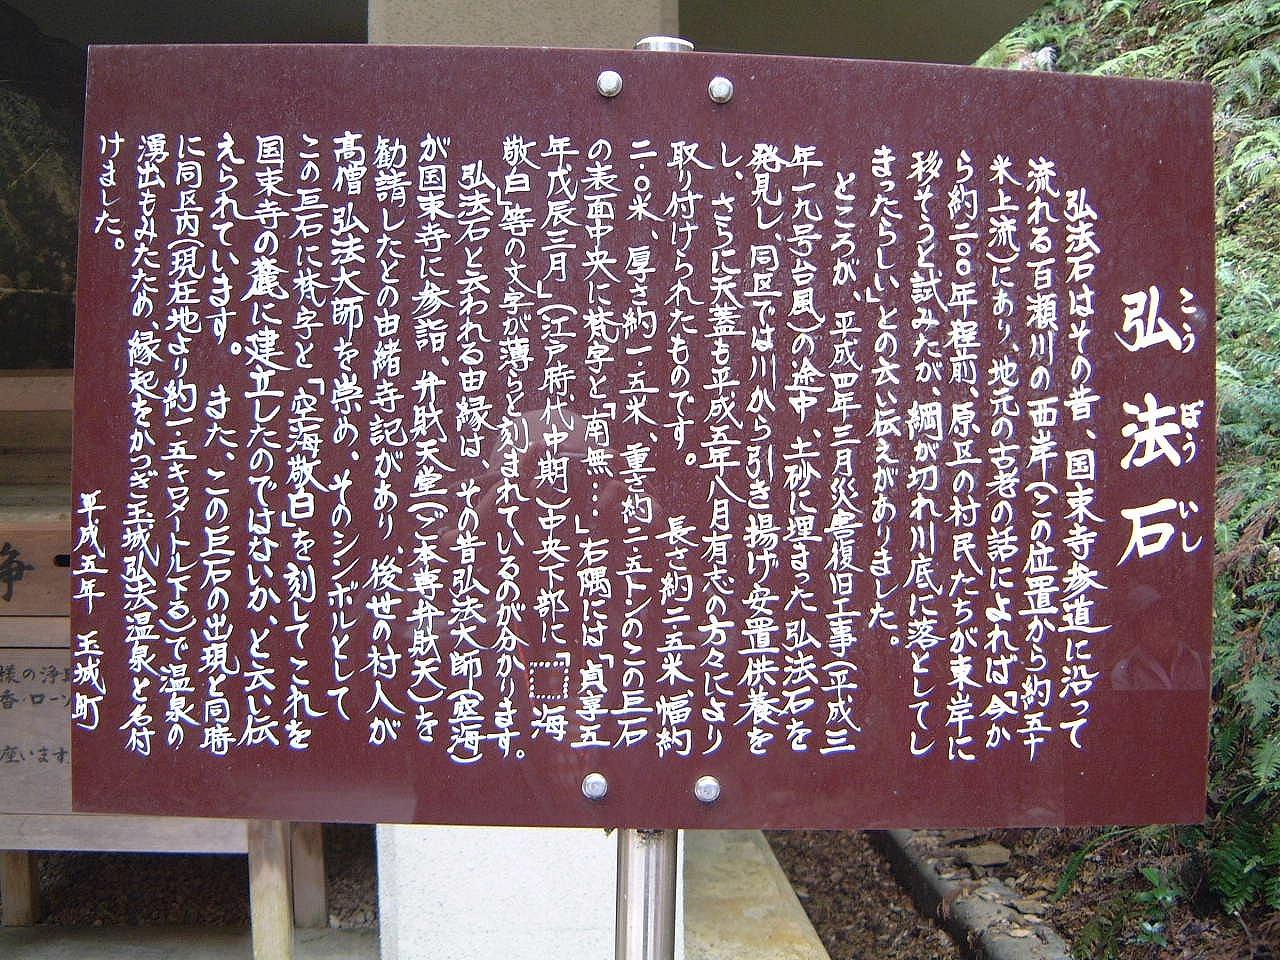 弘法石
こうぼういし
弘法石はその昔、国束寺参道に沿って
流れる百瀬川の西岸(この位置から約五十
米上流)にあり、地元の古老の話によれば「今か
ら約二〇〇年程前、原区の村民たちが東岸に
移そうと試みたが、綱が切れ川底に落としてし
まったらしい」との云い伝えがありました。
ところが、平成四年三月災害復旧工事(平成三
年一九号台風)の途中、土砂に埋まった弘法石を
発見し、同区では川から引き揚げ安置供養を
し、さらに天蓋も平成五年八月有志の方々により
取り付けられたものです。 長さ約二・五米、幅約
二・〇米、厚さ約一・五米、重さ約二・五トンのこの巨石
の表面中央に梵字と「南無…」右隅には「貞享五
年戊辰三月」(江戸時代中期)中央下部に「□海
敬白」等の文字が薄らと刻まれているのが分かります。
弘法石と云われる由縁は、その昔弘法大師(空海)
が国束寺に参詣、弁財天堂(ご本尊弁財天)を
勧請したとの由緒寺記があり、後世の村人が
高僧弘法大師を崇め、そのシンボルとして
この巨石に梵字と「空海敬白」を刻してこれを
国束寺の麓に建立したのではないか、と云い伝
えられています。 また、この巨石の出現と同時
に同区内(現在地より約一・五キロメートル下る)で温泉の
湧出もみたため、縁起をかつぎ玉城弘法温泉と名付
けました。
平成五年 玉城町
浄
様の浄
香・ロー
座います